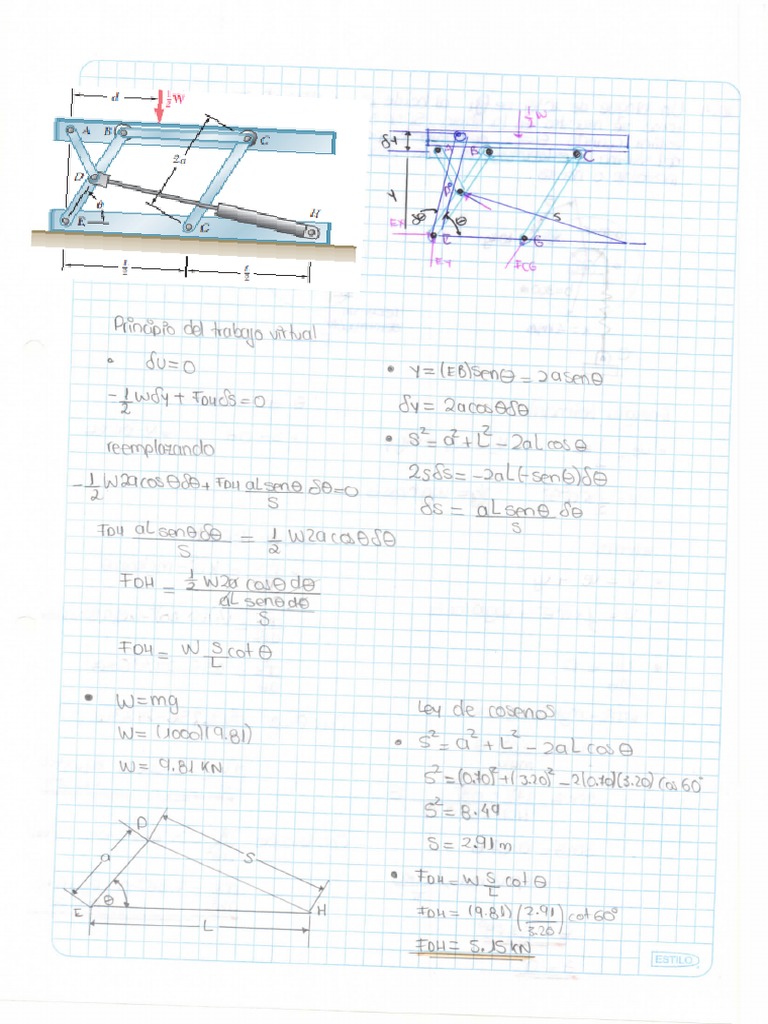 d
½W
A
B
C
2a
D
θ
E
G
H
L/2
L/2
½W
δy
A
B
C
D
y
s
δθ
θ
Ex
E
G
Ey
FCG
Principio del trabajo virtual
• δU=0
-½Wδy + FDHδs=0
reemplazando
-½W2acosθδθ+FDH aLsenθ/s δθ=0
FDH aLsenθδθ/s = ½W2acosθδθ
FDH = (½W2acosθdθ)/(aLsenθdθ/s)
FDH = W s/L cotθ
• W=mg
W=(1000)(9.81)
W= 9.81 KN
• Y=(EB)senθ=2asenθ
δy= 2acosθδθ
• s²=a²+L²-2aLcosθ
2sδs=-2aL(-senθ)δθ
δs = aLsenθ/s δθ
Ley de cosenos
• s²=a²+L²-2aLcosθ
s²=(0.70)²+(3.20)²-2(0.70)(3.20)cos60°
s²=8.49
s=2.91m
• FDH=W s/L cotθ
FDH=(9.81)(2.91/3.20)cot60°
FDH= 5.15KN
D
a
s
θ
E
H
L
ESTILO